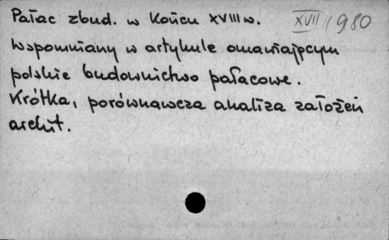 Pałac zbud. w Końcu XVIII w. XVII / 980
Wspomniany w artykule omawiającym
polskie budownictwo pałacowe.
Krótka, porównawcza analiza założeń
archit.